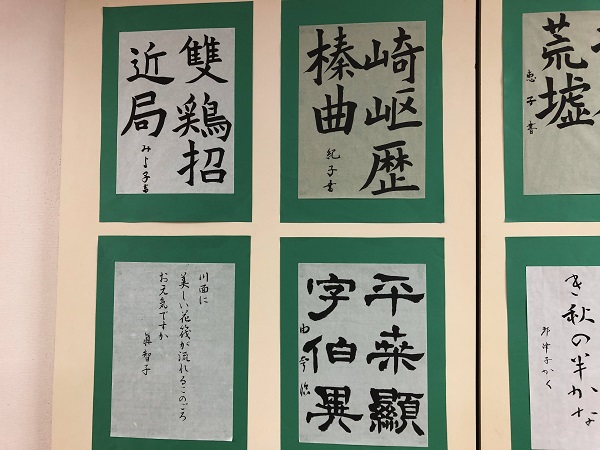 雙鶏招
近局
みよ子書
崎岖歴
榛曲
紀子書
荒墟
恵子書
川面に
美しい花筏が流れるこのごろ
お元気ですか
眞智子
平桒顯
字伯異
き秋の半かな